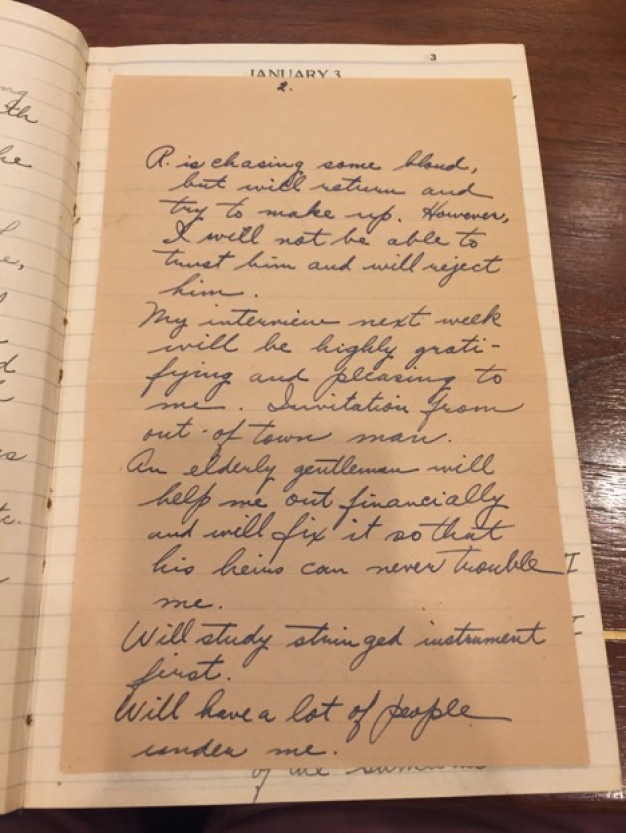 ng
th
he
e,
d
s
tc.
3
JANUARY 3
2.
R. is chasing some blond,
but will return and
try to make up. However,
I will not be able to
trust him and will reject
him.
My interview next week
will be highly grati-
fying and pleasing to
me. Invitation from
out-of town man.
An elderly gentleman will
help me out financially
and will fix it so that
his heirs can never trouble
me.
Will study stringed instrument
first.
Will have a lot of people
under me.
of the